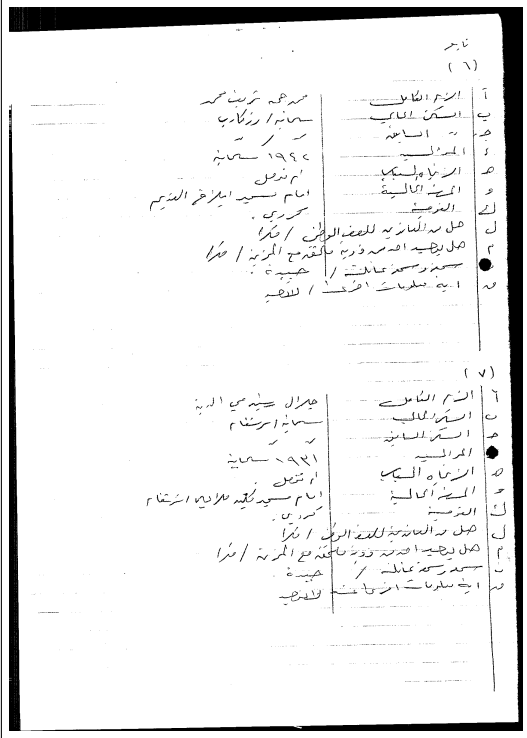 تابع
(٦)
أ الاسم الكامل محمد حمه شريف محمد
ب السكن الحالي سليمانية / رزكاري
ج = السابق = =
د المواليد ١٩٤٢ سليمانية
هـ الاتجاه السياسي
و المهنة الحالية امام مسجد القديم
ك القومية كوردي.
ل هل من العائدين للصف الوطني / كلا
م هل يوجد احد من ذويه ملتحق مع المخربين / كلا
سمعته وسمعة عائلته / جيدة.
اية معلومات اخرى / لا توجد
(٧)
أ الاسم الكامل جلال رشيد محي الدين
ب السكن الحالي سليمانية
ج السكن السابق = =
المواليد ١٩٣١ سليمانية
هـ الاتجاه السياسي
و المهنة الحالية امام مسجد
ك القومية كردي.
ل هل من العائدين للصف الوطني / كلا
م هل يوجد احد من ذويه ملتحق مع المخربين / كلا
ن سمعته وسمعة عائلته / جيدة
اية معلومات اخرى لا توجد